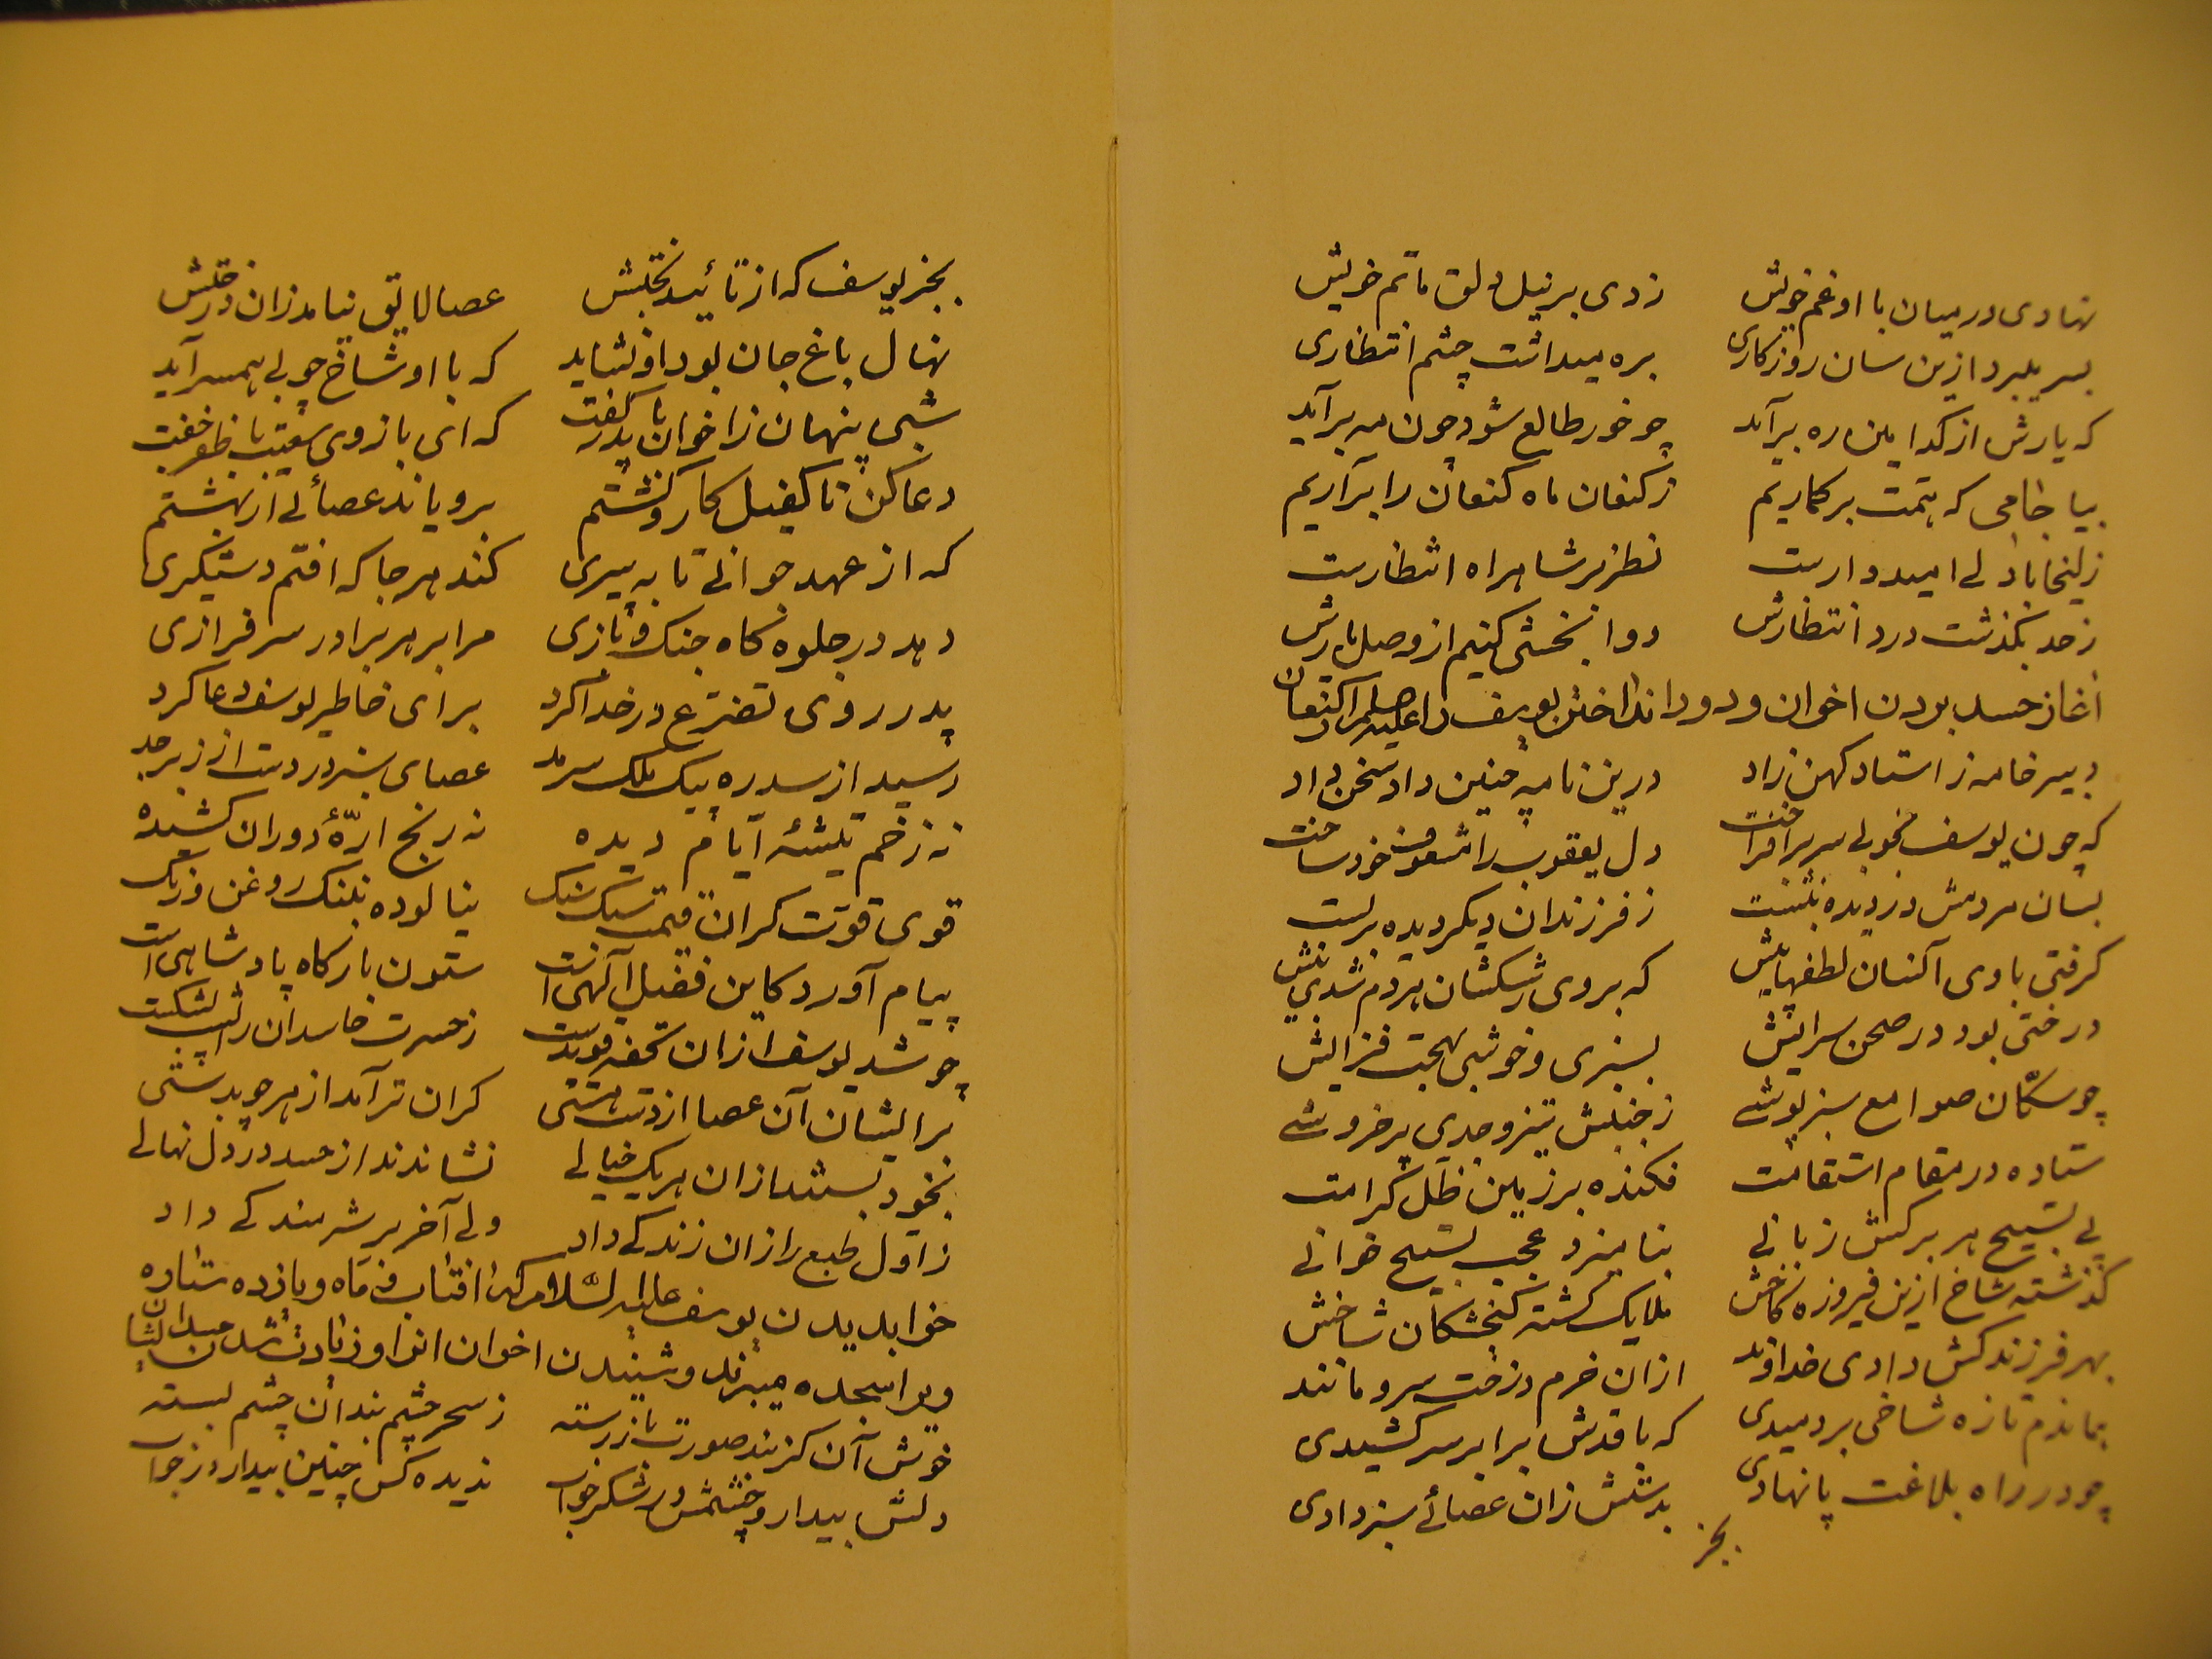 نهادی درمیان با او غم خویش زدی بر نیل دلق ماتم خویش
بسر میبرد ازین سان روزکاری بره میداشت چشم انتظاری
که یارش از کدامین ره برآید چو خور طالع شود چون مه برآید
بیا جامی که همت برکماریم زکنعان ماه کنعان را برآریم
زلیخا با دلی امیدوارست نظر بر شاهراه انتظارست
زحد بکذشت درد انتظارش دوا بخشی کنیم از وصل یارش
آغاز حسد بردن اخوان و دور انداختن یوسف را علیه السلام از کنعان
دبیر خامه ز استاد کهن زاد درین نامه چنین داد سخن داد
که چون یوسف بخوبی سر برافراخت دل یعقوب را مشعوف خود ساخت
بسان مردمش در دیده بنشست ز فرزندان دیکر دیده بربست
کرفتی با وی آنسان لطفها پیش که بر وی رشکشان هردم شدی بیش
درختی بود در صحن سرایش بسبزی و خوشی بهجت فزایش
چو سکّان صوامع سبزپوشی ز جنبش تیز وجدی پرخروشی
ستاده در مقام استقامت فکنده بر زمین ظلّ کرامت
پی تسبیح هر برکش زبانی بنامیزد عجب تسبیح خوانی
کذشته شاخ ازین فیروزه کاخش ملایک کشته کنجشکان شاخش
بهر فرزند کش دادی خداوند ازان خرم درخت سرو مانند
هماندم تازه شاخی بر دمیدی که با قدش برابر سر کشیدی
چو در راه بلاغت پا نهادی بدستش زان عصائے سبز دادی
بجز
بجز یوسف که از تائید بختش عصا لایق نیامد زان درختش
نهال باغ جان بود او نشاید که با او شاخ چوبی همسر آید
شبی پنهان ز اخوان با پدر کفت که ای بازوی سعیت با ظفر جفت
دعا کن تا کفیل کار و کشتم برویاند عصائی از بهشتم
که از عهد جوانی تا به پیری کند هر جا که افتم دستکیری
دهد در جلوه کاه جنک و بازی مرا بر هر برادر سرفرازی
پدر روی تضرّع در خدا کرد برای خاطر یوسف دعا کرد
رسید از سدره پیک ملک سرمد عصای سبز در دست از زبرجد
نه زخم تیشهٔ ایام دیده نه رنج ارّهٔ دوران کشیده
قوی قوّت کران قیمت سبک سنک نیالوده بننک روغن و رنک
پیام آورد کاین فضل آلهی است ستون بارکاه پادشاهی است
چو شد یوسف ازان تحفه قوی دست ز حسرت حاسدان را پشت بشکست
برایشان آن عصا از دست مشتی کران تر آمد از هر چوبدستی
بخود بستند ازان هریک خیالی نشاندند از حسد در دل نهالی
ز اوّل طبع را زان زندکی داد ولی آخر بر شرمندکی داد
خواب دیدن یوسف علیه السّلام که آفتاب و ماه و یازده ستاره
ویرا سجده میبرند و شنیدن اخوان انرا و زیادت شدن حسد ایشان
خوش آن کز بند صورت باز رسته ز سحر چشم بندان چشم بسته
دلش بیدار و چشمش در شکرخواب ندیده کس چنین بیدار در خواب